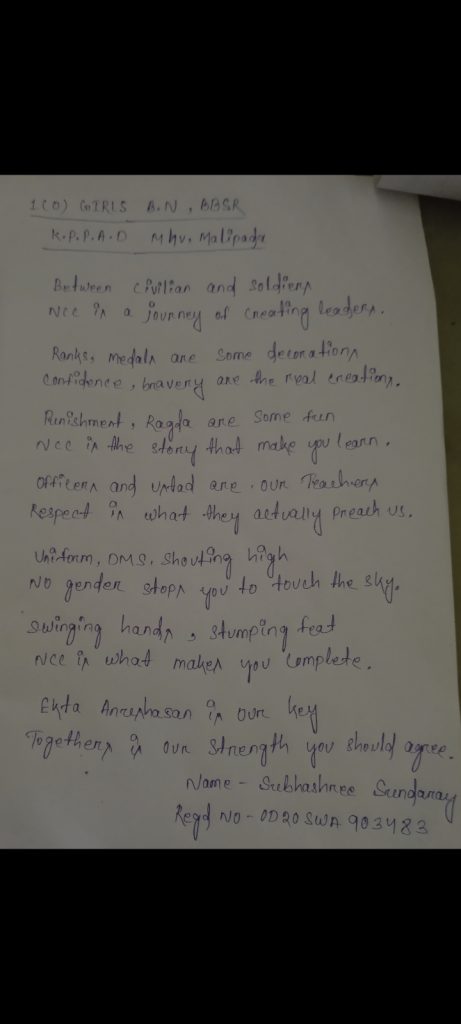 1(O) GIRLS B.N, BBSR
K.P.P.A.D Mhv. Malipada
Between civilian and soldiers
NCC is a journey of creating leaders.
Ranks, medals are some decorations
Confidence, bravery are the real creations.
Punishment, Ragda are some fun
NCC is the story that make you learn.
Officers and ustad are our Teachers
Respect is what they actually preach us.
Uniform, DMS, shouting high
NO gender stops you to touch the sky.
Swinging hands, stumping feat
NCC is what makes you complete.
Ekta Anushasan is our key
Togethers is our strength you should agree.
Name - Subhashree Sundaray
Regd NO - OD20SWA903483